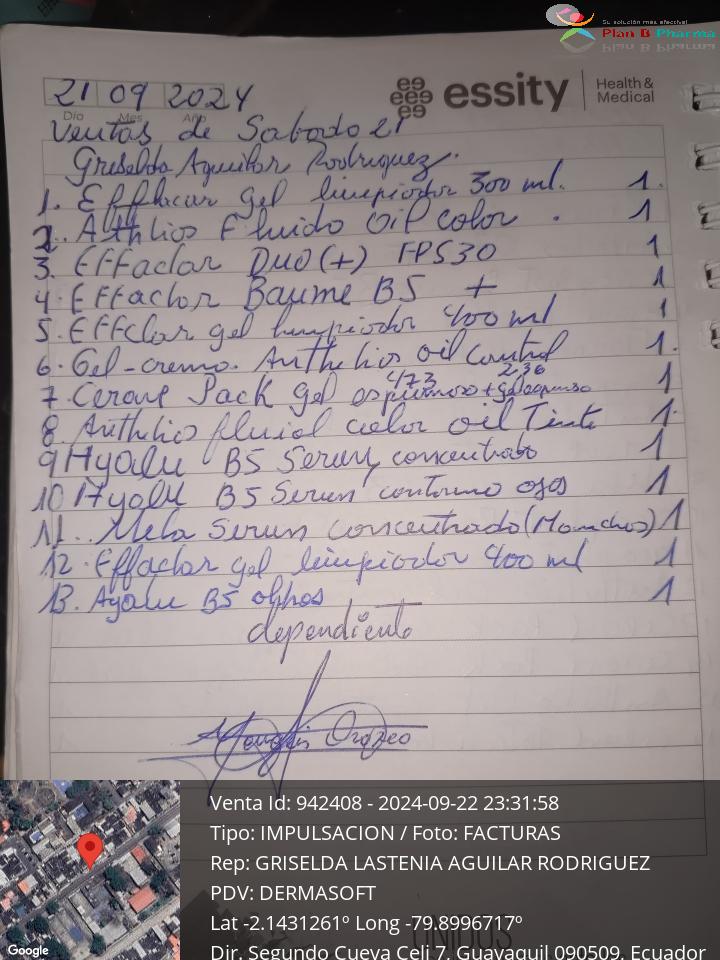 Su solución más efectiva!
Plan B Pharma
21 09 2024
Día Mes Año
essity
Health &
Medical
Ventas de Sabado 21
Griselda Aguilar Rodriguez.
1. Efflacar gel limpiador 300 ml. 1.
2.. Athlios Fluido Oil color . 1
3. EFFaclar Duo(+) FPS30 1
4. EFFaclar Baume B5 + 1
5. Effclar gel limpiador 400 ml 1
6. Gel-crema. Anthelios oil Control 1.
7. Cerave Pack gel espumoso 473 + gel espumoso 236 1
8. Anthelios fluid color oil Tinte 1.
9 Hyalu B5 Serum concentrado 1
10 Hyalu B5 Serum contorno ojos 1
11.. Mela Serum concentrado (Manchas) 1
12. Effaclar gel limpiador 400 ml 1
13. Ayalu B5 ohhos 1
dependiente
Orozco
Venta Id: 942408 - 2024-09-22 23:31:58
Tipo: IMPULSACION / Foto: FACTURAS
Rep: GRISELDA LASTENIA AGUILAR RODRIGUEZ
PDV: DERMASOFT
Lat -2.1431261º Long -79.8996717º
Dir. Segundo Cueva Celi 7, Guayaquil 090509, Ecuador
Google